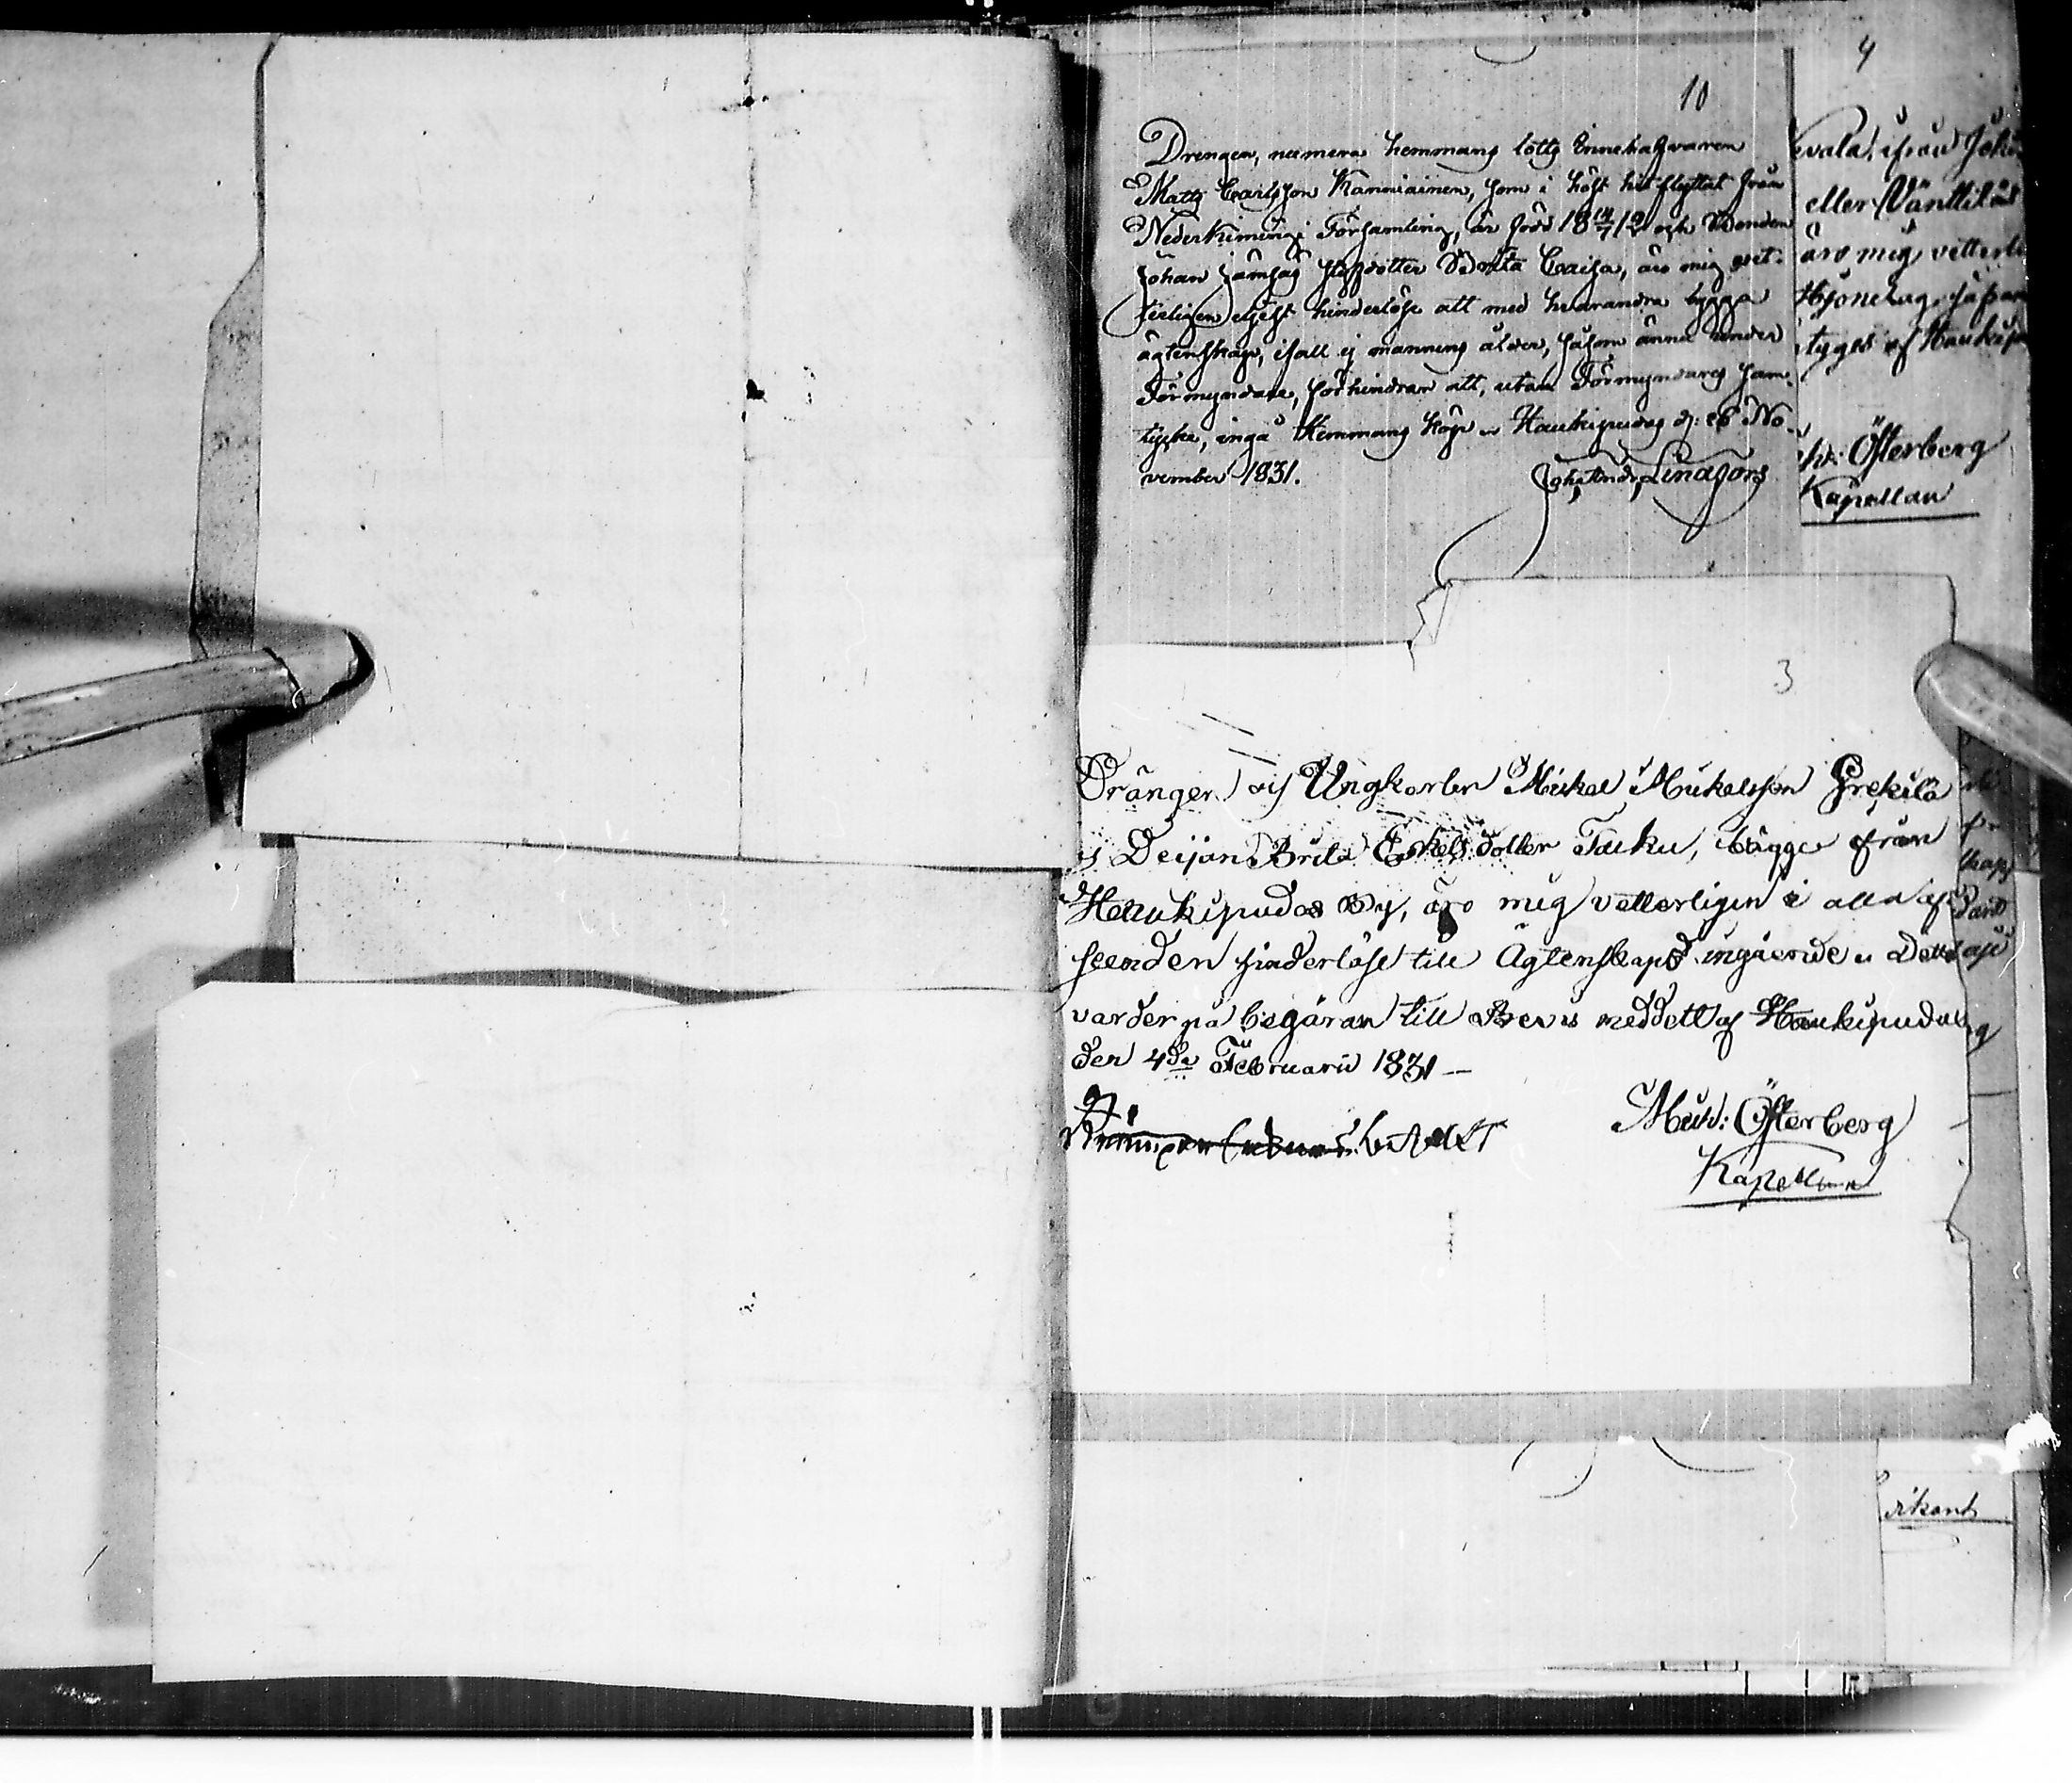 10
Drengen, numera hemmans lotts Innehafvaren
Matts Carlsson Kännäinen, som i höst hit flyttat från
Nederkimingi Församling, är född 18 14/7 12 och Bonden
Johan Jämsäs styfdotter Brita Caisa, äro mig vet-
terligen eljest hinderlöse att med hvarandra bygga
ägtenskap, ifall ej mannens ålder, såsom ännu under
Förmyndare, förhindrar att, utan Förmyndares sam-
tycke, ingå Hemmans köp. Haukipudas d: 26 No-
vember 1831.
Joh. Andr. Lindfors
4
vala, ifrån Joki
eller Vänttilä
äro mig vetterli
Hjonelag, så
tyges af Haukip
Österberg
Kapellan
3
Drängen och Ungkarlen Mickel Mickelsson Grekilä
och Deijan Brita Erkels dotter Taku, bägge från
Haukipudas By, äro mig vetterligen i alla af-
seenden hinderlöse till Ägtenskaps ingående. Detta
varder på begäran till Bevis meddelt af Haukipudas
den 4de Februarii 1831 —
Mich: Österberg
Kapellan